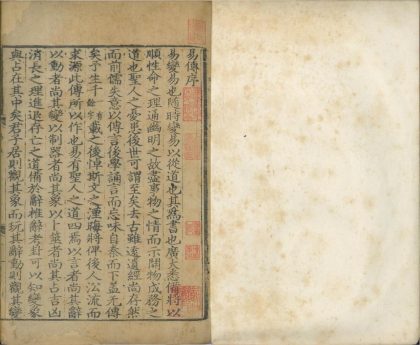 易傳序
易變易也隨時變易以從道也其爲書也廣大悉備將以
順性命之理通幽明之故盡事物之情而示開物成務之
道也聖人之憂患後世可謂至矣去古雖遠遺經尚存然
而前儒失意以傳言後學誦言而忘味自秦而下蓋无傳
矣予生千餘載之後悼斯文之湮晦將俾後人沿流而
求源此傳所以作也易有聖人之道四焉以言者尚其辭
以動者尚其變以制器者尚其象以卜筮者尚其占吉凶
消長之理進退存亡之道備於辭推辭考卦可以知變象
與占在其中矣君子居則觀其象而玩其辭動則觀其變